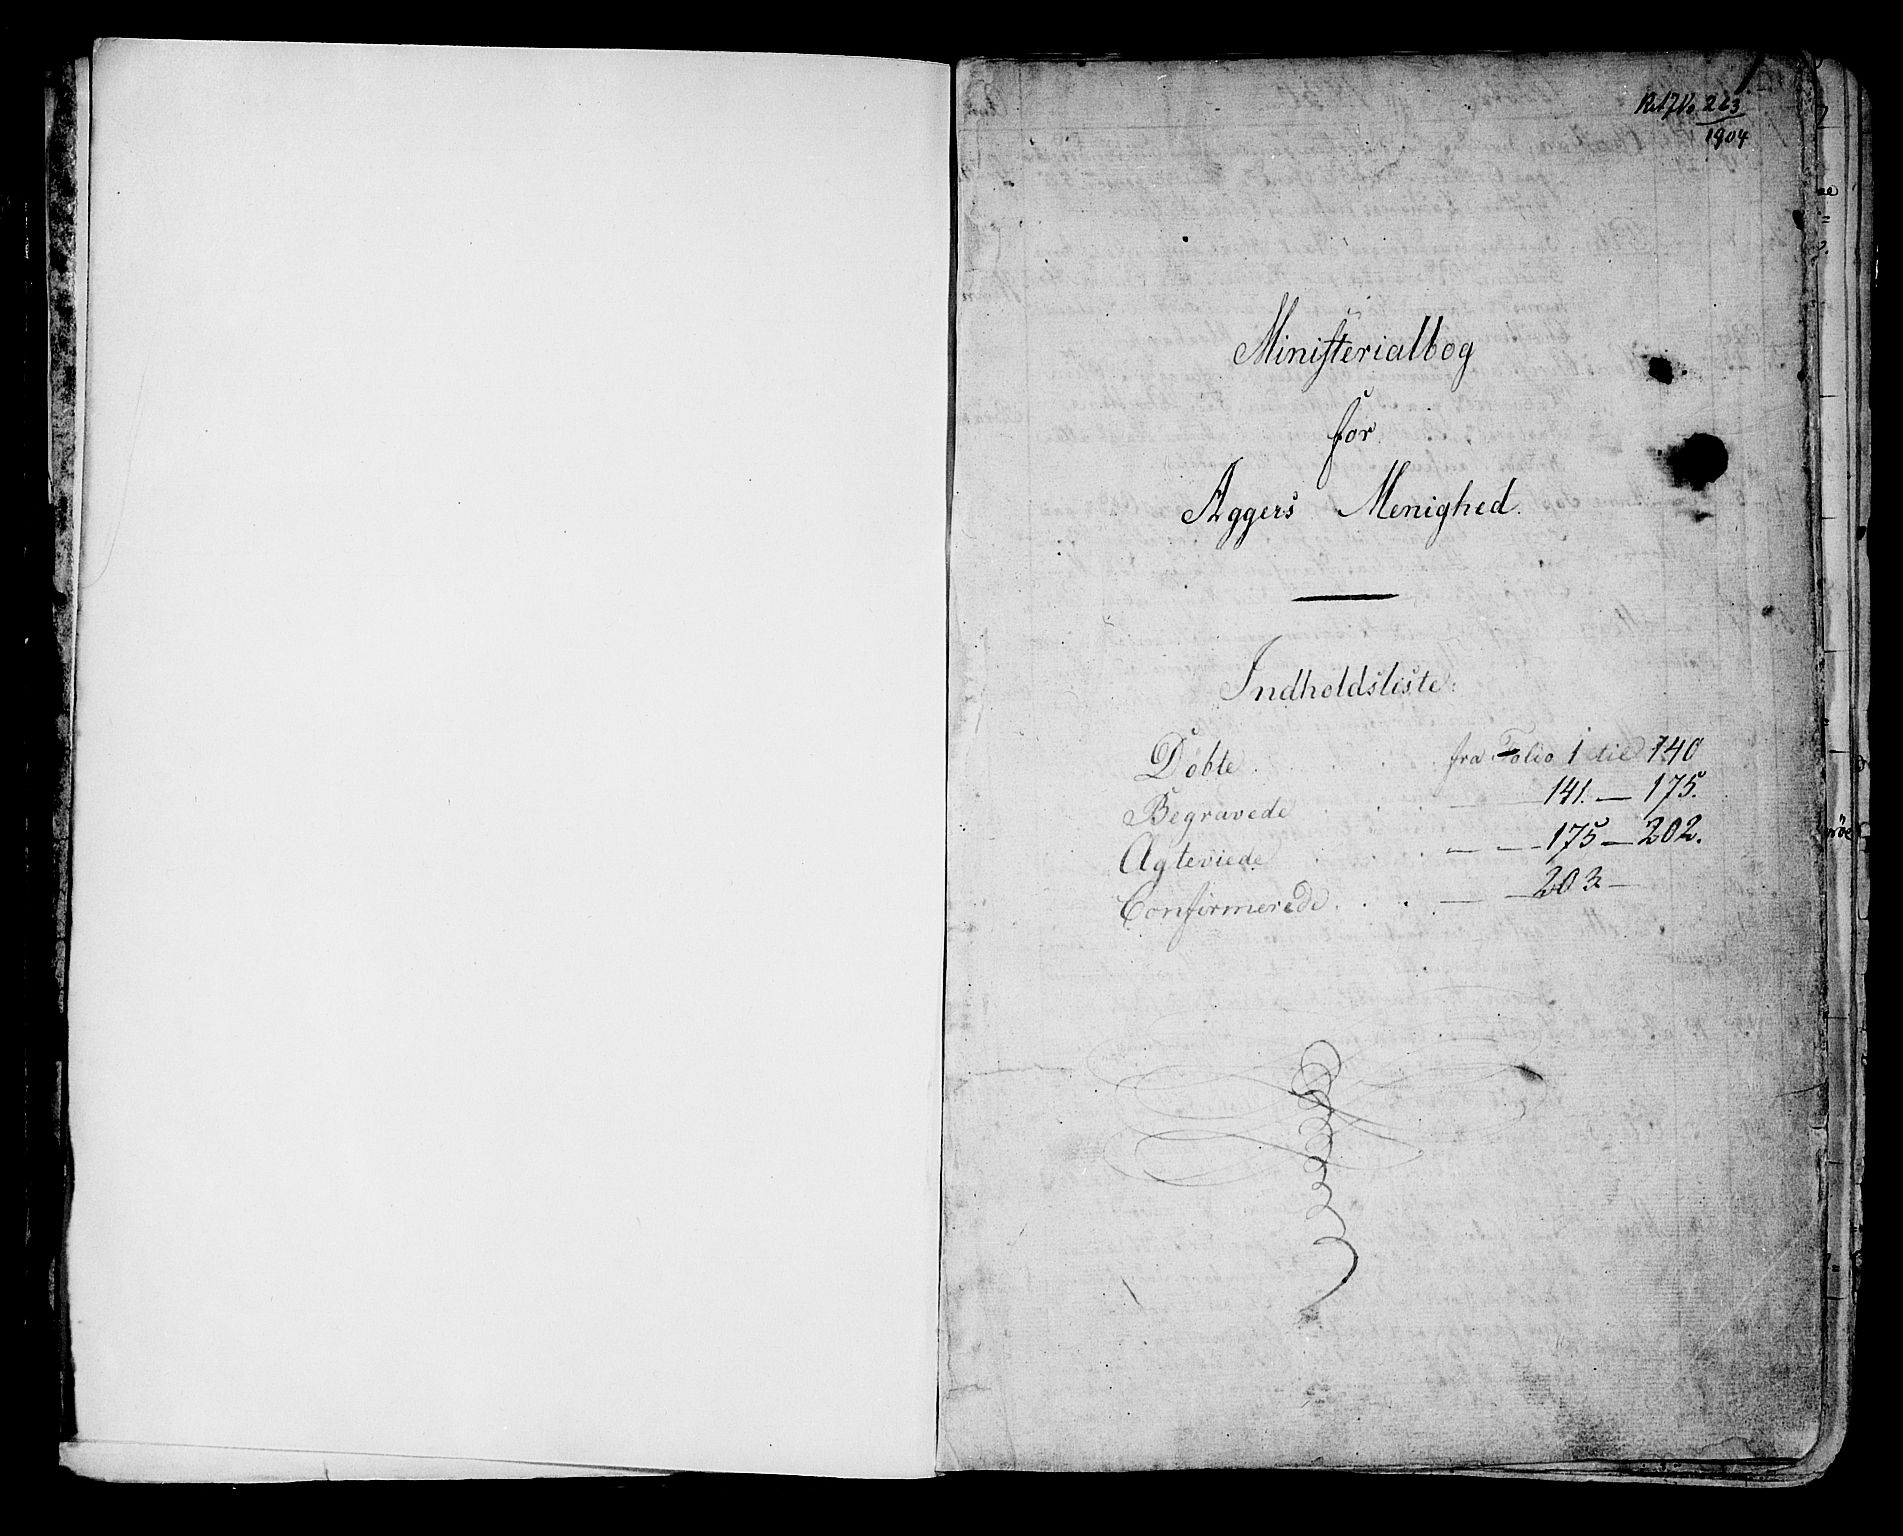 1.
263
1904
Ministerialbog
for
Aggers Menighed.
Indholdsliste:
Døbte . . . . fra Folio 1 til 140
Begravede . . . — — 141. — 175.
Ægteviede . . . — — 175 — 202.
Confirmerede . . . — — 203 —